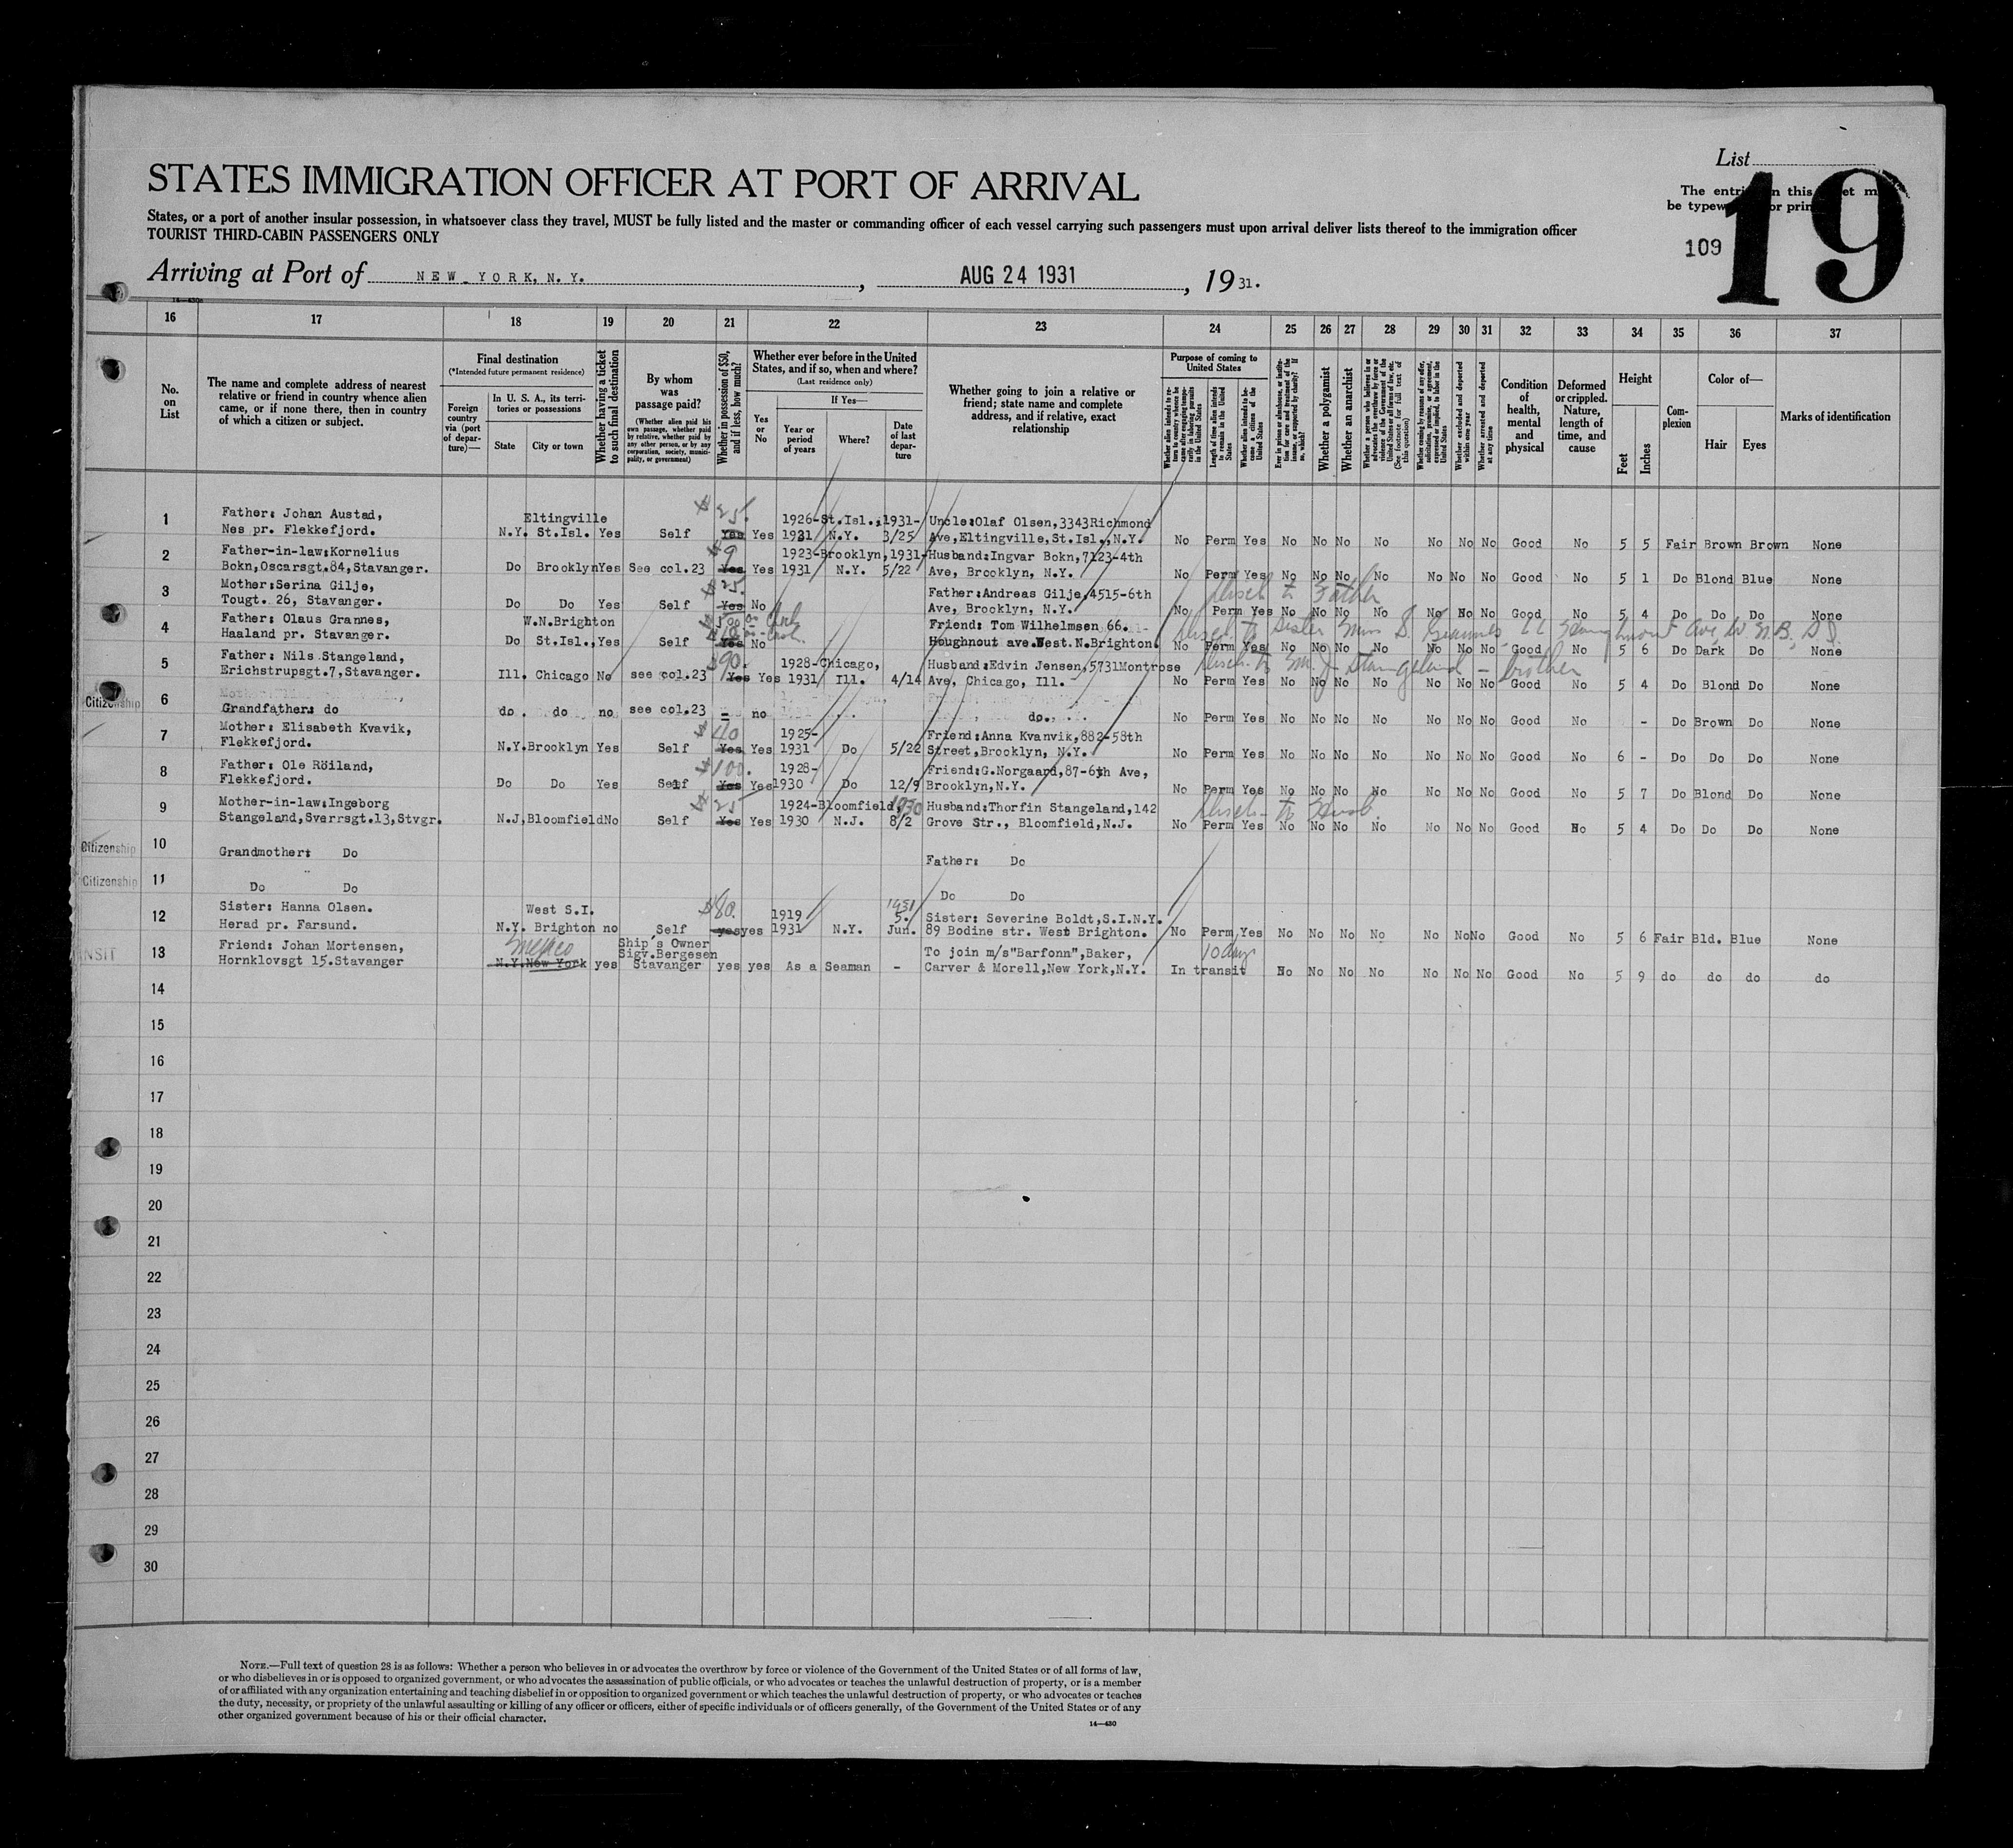 List
STATES IMMIGRATION OFFICER AT PORT OF ARRIVAL
The entri n this et m
be typew or prin
19
109
States, or a port of another insular possession, in whatsoever class they travel, MUST be fully listed and the master or commanding officer of each vessel carrying such passengers must upon arrival deliver lists thereof to the immigration officer
TOURIST THIRD-CABIN PASSENGERS ONLY
Arriving at Port of NEW YORK, N.Y. , AUG 24 1931 , 19 31.
16 17 18 19 20 21 22 23 24 25 26 27 28 29 30 31 32 33 34 35 36 37
No. on List
The name and complete address of nearest relative or friend in country whence alien came, or if none there, then in country of which a citizen or subject.
Final destination
(*Intended future permanent residence)
Foreign country via (port of departure)—
In U. S. A., its territories or possessions
State City or town
Whether having a ticket to such final destination
By whom was passage paid?
(Whether alien paid his own passage, whether paid by relative, whether paid by any other person, or by any corporation, society, municipality, or government)
Whether in possession of $50, and if less, how much?
Whether ever before in the United States, and if so, when and where?
(Last residence only)
Yes or No
If Yes—
Year or period of years
Where?
Date of last departure
Whether going to join a relative or friend; state name and complete address, and if relative, exact relationship
Purpose of coming to United States
Whether a polygamist
Whether an anarchist
Whether excluded and deported within one year
Whether arrested and deported at any time
Condition of health, mental and physical
Deformed or crippled. Nature, length of time, and cause
Height
Feet Inches
Complexion
Color of—
Hair Eyes
Marks of identification
1 Father: Johan Austad, Eltingville $25. 1926-St.Isl., 1931- Uncle:Olaf Olsen,3343Richmond
Nes pr. Flekkefjord. N.Y. St.Isl. Yes Self Yes Yes 1931 N.Y. 3/25 Ave,Eltingville,St.Isl.,N.Y. No Perm Yes No No No No No No No Good No 5 5 Fair Brown Brown None
2 Father-in-law:Kornelius $9 1923-Brooklyn,1931- Husband:Ingvar Bokn,7123-4th
Bokn,Oscarsgt.84,Stavanger. Do Brooklyn Yes See col.23 Yes Yes 1931 N.Y. 5/22 Ave, Brooklyn, N.Y. No Perm Yes No No No No No No No Good No 5 1 Do Blond Blue None
3 Mother:Serina Gilje, $25. Father:Andreas Gilje,4515-6th disch to Father
Tougt. 26, Stavanger. Do Do Yes Self Yes No Ave, Brooklyn, N.Y. No Perm Yes No No No No No No No Good No 5 4 Do Do Do None
4 Father: Olaus Grannes, W.N.Brighton Friend: Tom Wilhelmsen 66.
Haaland pr. Stavanger. Do St.Isl., Yes Self Yes No Houghnout ave.West.N.Brighton. No Perm Yes No No No No No No No Good No 5 6 Do Dark Do None
5 Father: Nils Stangeland, $90. 1928-Chicago, Husband:Edvin Jensen,5731Montrose
Erichstrupsgt.7,Stavanger. Ill. Chicago No see col.23 Yes Yes 1931 Ill. 4/14 Ave, Chicago, Ill. No Perm Yes No No No No No No No Good No 5 4 Do Blond Do None
Citizenship 6
Grandfather: do do. do no see col.23 - no do. No Perm Yes No No No No No No No Good No - Do Brown Do None
7 Mother: Elisabeth Kvavik, $40 1925- Friend:Anna Kvanvik,882-58th
Flekkefjord. N.Y. Brooklyn Yes Self Yes Yes 1931 Do 5/22 Street,Brooklyn, N.Y. No Perm Yes No No No No No No No Good No 6 - Do Do Do None
8 Father: Ole Röiland, $100. 1928- Friend:G.Norgaard,87-6th Ave,
Flekkefjord. Do Do Yes Self Yes Yes 1930 Do 12/9 Brooklyn,N.Y. No Perm Yes No No No No No No No Good No 5 7 Do Blond Do None
9 Mother-in-law:Ingeborg $25 1924-Bloomfield, 1930 Husband:Thorfin Stangeland,142
Stangeland,Sverrsgt.13,Stvgr. N.J. Bloomfield No Self Yes Yes 1930 N.J. 8/2 Grove Str., Bloomfield,N.J. No Perm Yes No No No No No No No Good No 5 4 Do Do Do None
Citizenship 10 Grandmother: Do Father: Do
Citizenship 11 Do Do Do Do
12 Sister: Hanna Olsen. West S.I. $80. 1919 1931 5. Sister: Severine Boldt,S.I.N.Y.
Herad pr. Farsund. N.Y. Brighton no Self yes yes 1931 N.Y. Jun. 89 Bodine str. West Brighton. No Perm Yes No No No No No No No Good No 5 6 Fair Bld. Blue None
NSIT 13 Friend: Johan Mortensen, Mexico Ship's Owner Sigv.Bergesen To join m/s"Barfonn",Baker, 10 days
Hornklovsgt 15.Stavanger N.Y. New York yes Stavanger yes yes As a Seaman - Carver & Morell,New York,N.Y. In transit No No No No No No No Good No 5 9 do do do do
14
15
16
17
18
19
20
21
22
23
24
25
26
27
28
29
30
NOTE.—Full text of question 28 is as follows: Whether a person who believes in or advocates the overthrow by force or violence of the Government of the United States or of all forms of law,
or who disbelieves in or is opposed to organized government, or who advocates the assassination of public officials, or who advocates or teaches the unlawful destruction of property, or is a member
of or affiliated with any organization entertaining and teaching disbelief in or opposition to organized government or which teaches the unlawful destruction of property, or who advocates or teaches
the duty, necessity, or propriety of the unlawful assaulting or killing of any officer or officers, either of specific individuals or of officers generally, of the Government of the United States or of any
other organized government because of his or their official character.
14—430